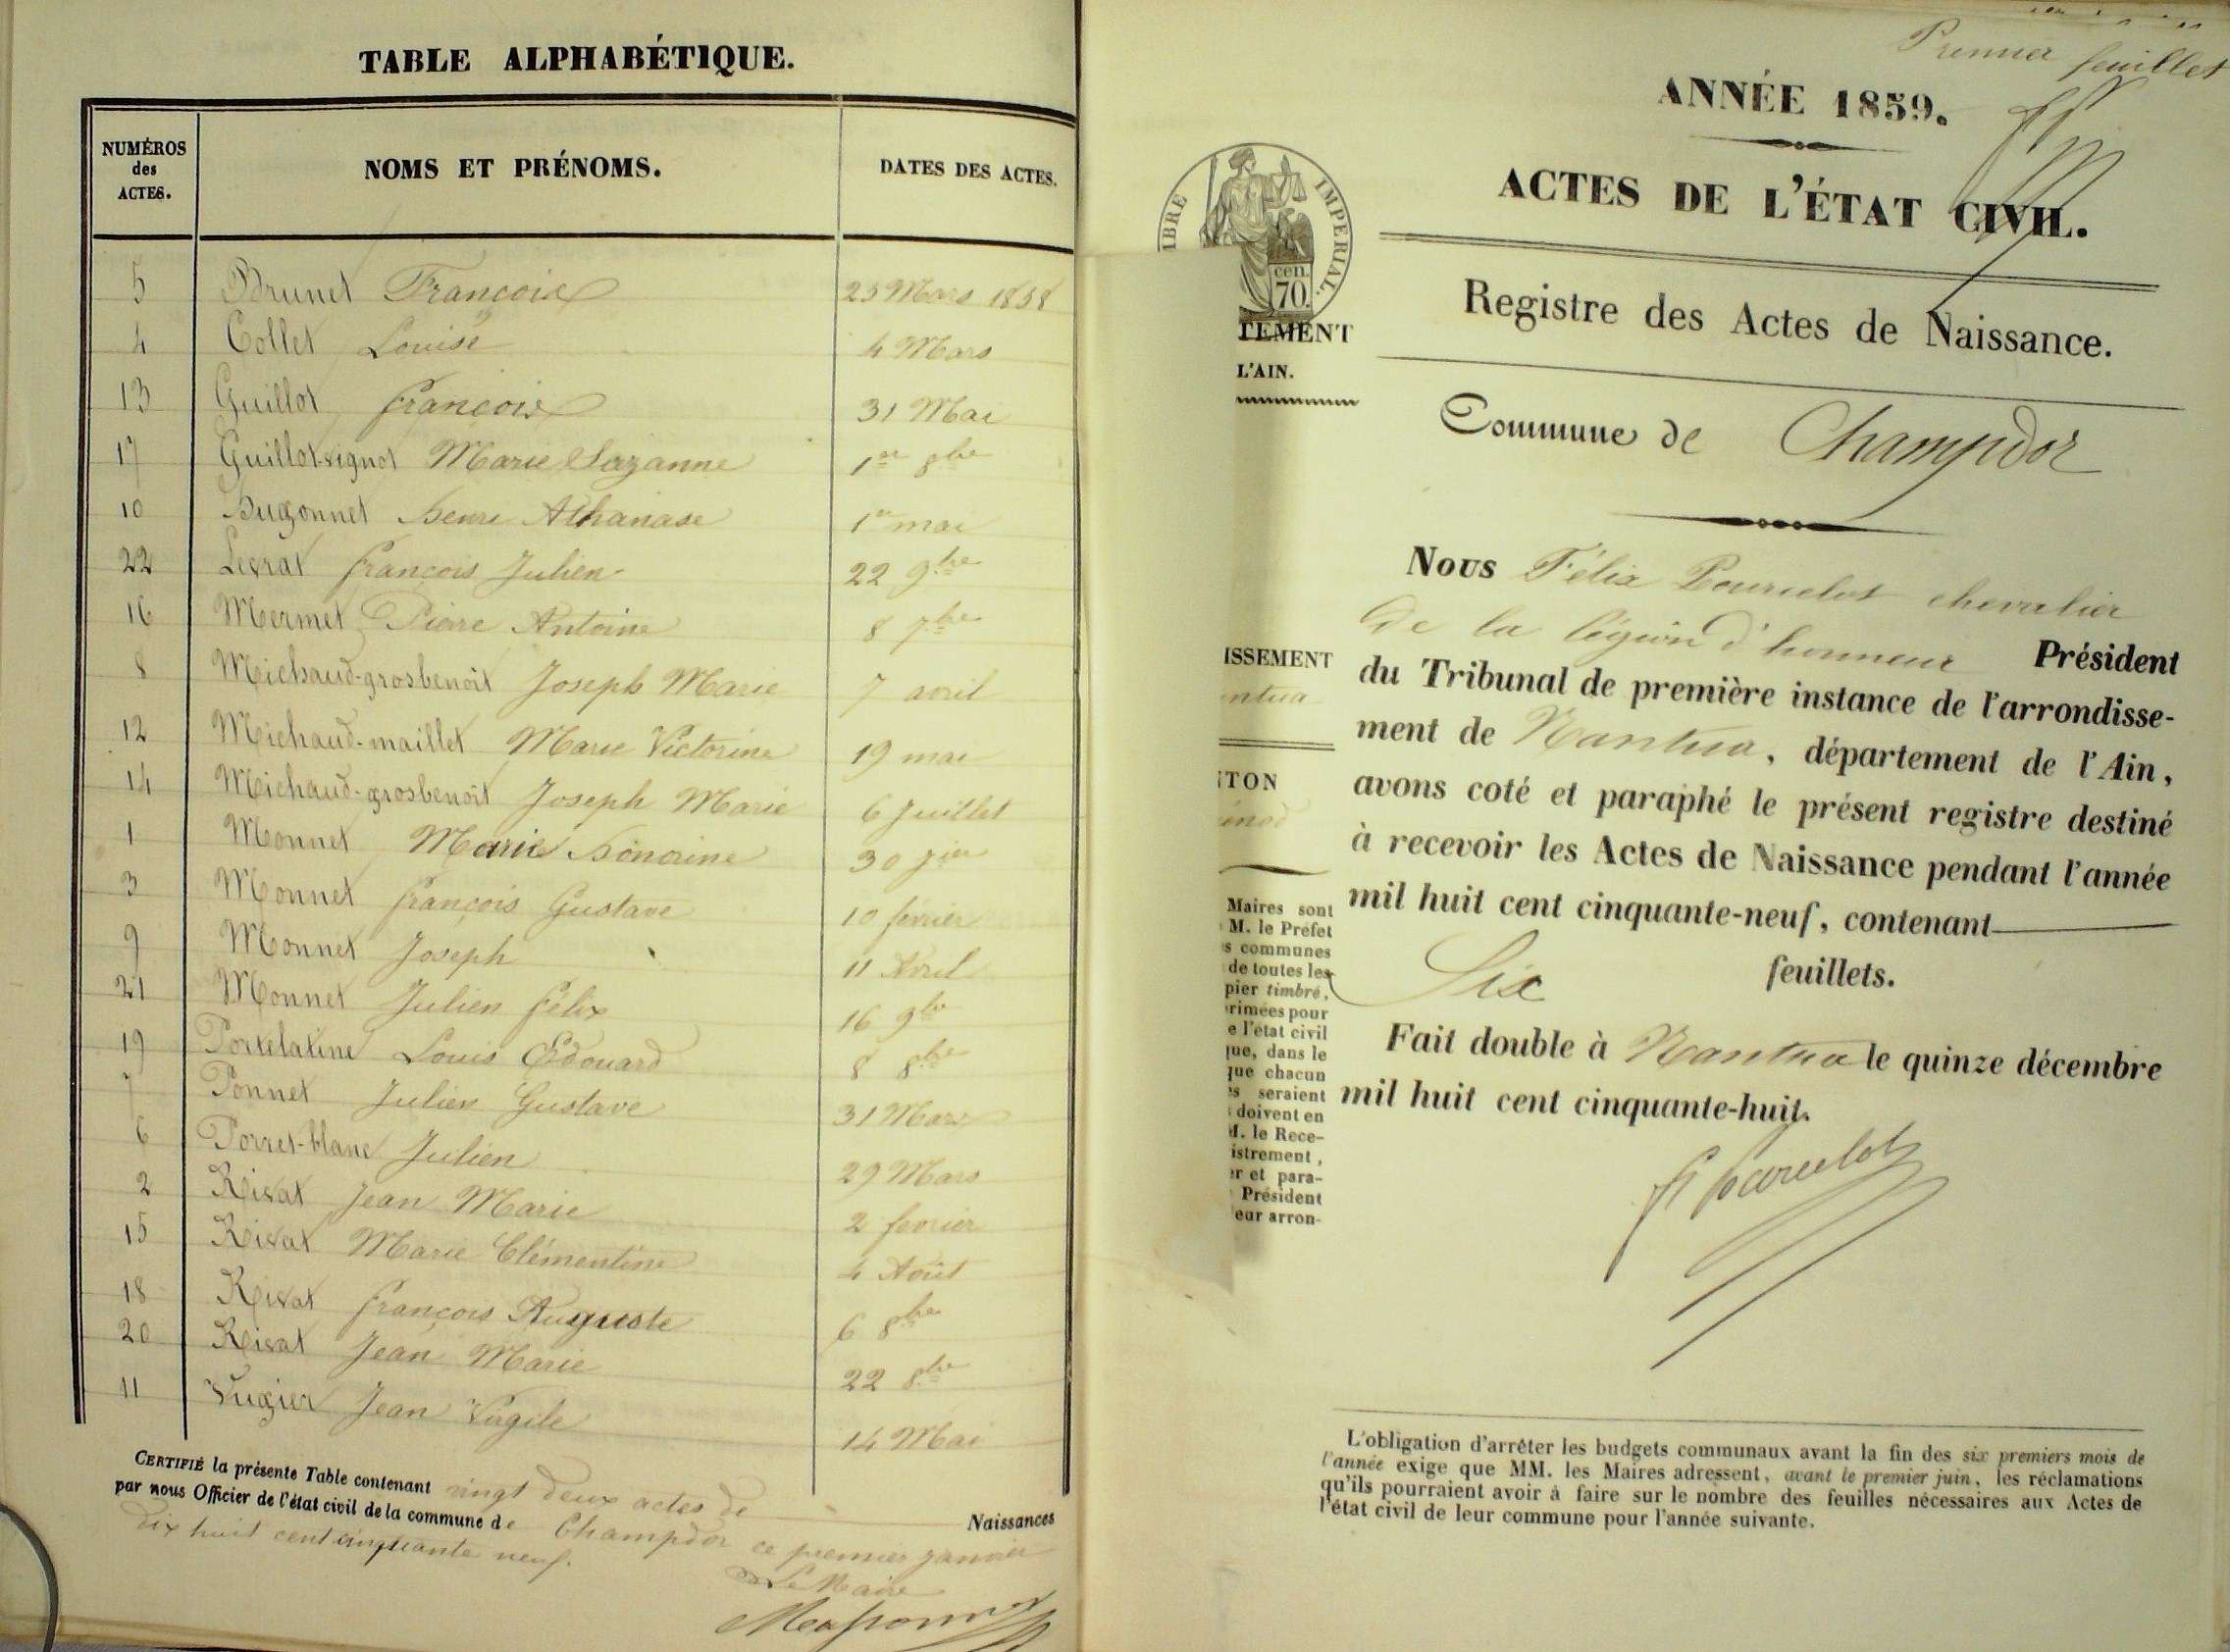 TABLE ALPHABÉTIQUE.
NUMÉROS des ACTES. NOMS ET PRÉNOMS. DATES DES ACTES.
5 Brunet François 25 Mars 1858
4 Collet Louise 4 Mars
13 Guillot François 31 Mai
17 Guillot-vignot Marie Suzanne 1er 8bre
10 Hugonnet Henri Athanase 1er mai
22 Levrat François Julien 22 9bre
16 Mermet Pierre Antoine 8 7bre
8 Michaud-grosbenoit Joseph Marie 7 avril
12 Michaud-maillet Marie Victorine 19 mai
14 Michaud-grosbenoit Joseph Marie 6 Juillet
1 Monnet Marie Honorine 30 Jier
3 Monnet François Gustave 10 février
9 Monnet Joseph 11 Avril
21 Monnet Julien félix 16 9bre
19 Portelatine Louis Edouard 8 8bre
7 Ponnet Julien Gustave 31 Mars
6 Porret-blanc Julien 29 Mars
2 Rivat Jean Marie 2 fevrier
15 Rivat Marie Clémentine 4 Août
18 Rivat François Auguste 6 8bre
20 Rivat Jean Marie 22 8bre
11 Vugier Jean Virgile 14 Mai
CERTIFIÉ la présente Table contenant vingt deux actes de Naissances
par nous Officier de l'état civil de la commune de Champdor ce premier janvier
dix huit cent cinquante neuf.
Le Maire
Premier feuillet
ANNÉE 1859.
ACTES DE L'ÉTAT CIVIL.
Registre des Actes de Naissance.
Commune de Champdor
IBRE IMPERIAL.
cen.
70.
TEMENT
L'AIN.
ISSEMENT
ntua
TON
énod
Maires sont
M. le Préfet
s communes
de toutes les
pier timbré,
rimées pour
e l'état civil
que, dans le
que chacun
s seraient
doivent en
M. le Rece-
istrement,
er et para-
Président
eur arron-
Nous Félix Pourcelot chevalier
de la légion d'honneur Président
du Tribunal de première instance de l'arrondisse-
ment de Nantua, département de l'Ain,
avons coté et paraphé le présent registre destiné
à recevoir les Actes de Naissance pendant l'année
mil huit cent cinquante-neuf, contenant
Six feuillets.
Fait double à Nantua le quinze décembre
mil huit cent cinquante-huit.
L'obligation d'arrêter les budgets communaux avant la fin des six premiers mois de
l'année exige que MM. les Maires adressent, avant le premier juin, les réclamations
qu'ils pourraient avoir à faire sur le nombre des feuilles nécessaires aux Actes de
l'état civil de leur commune pour l'année suivante.